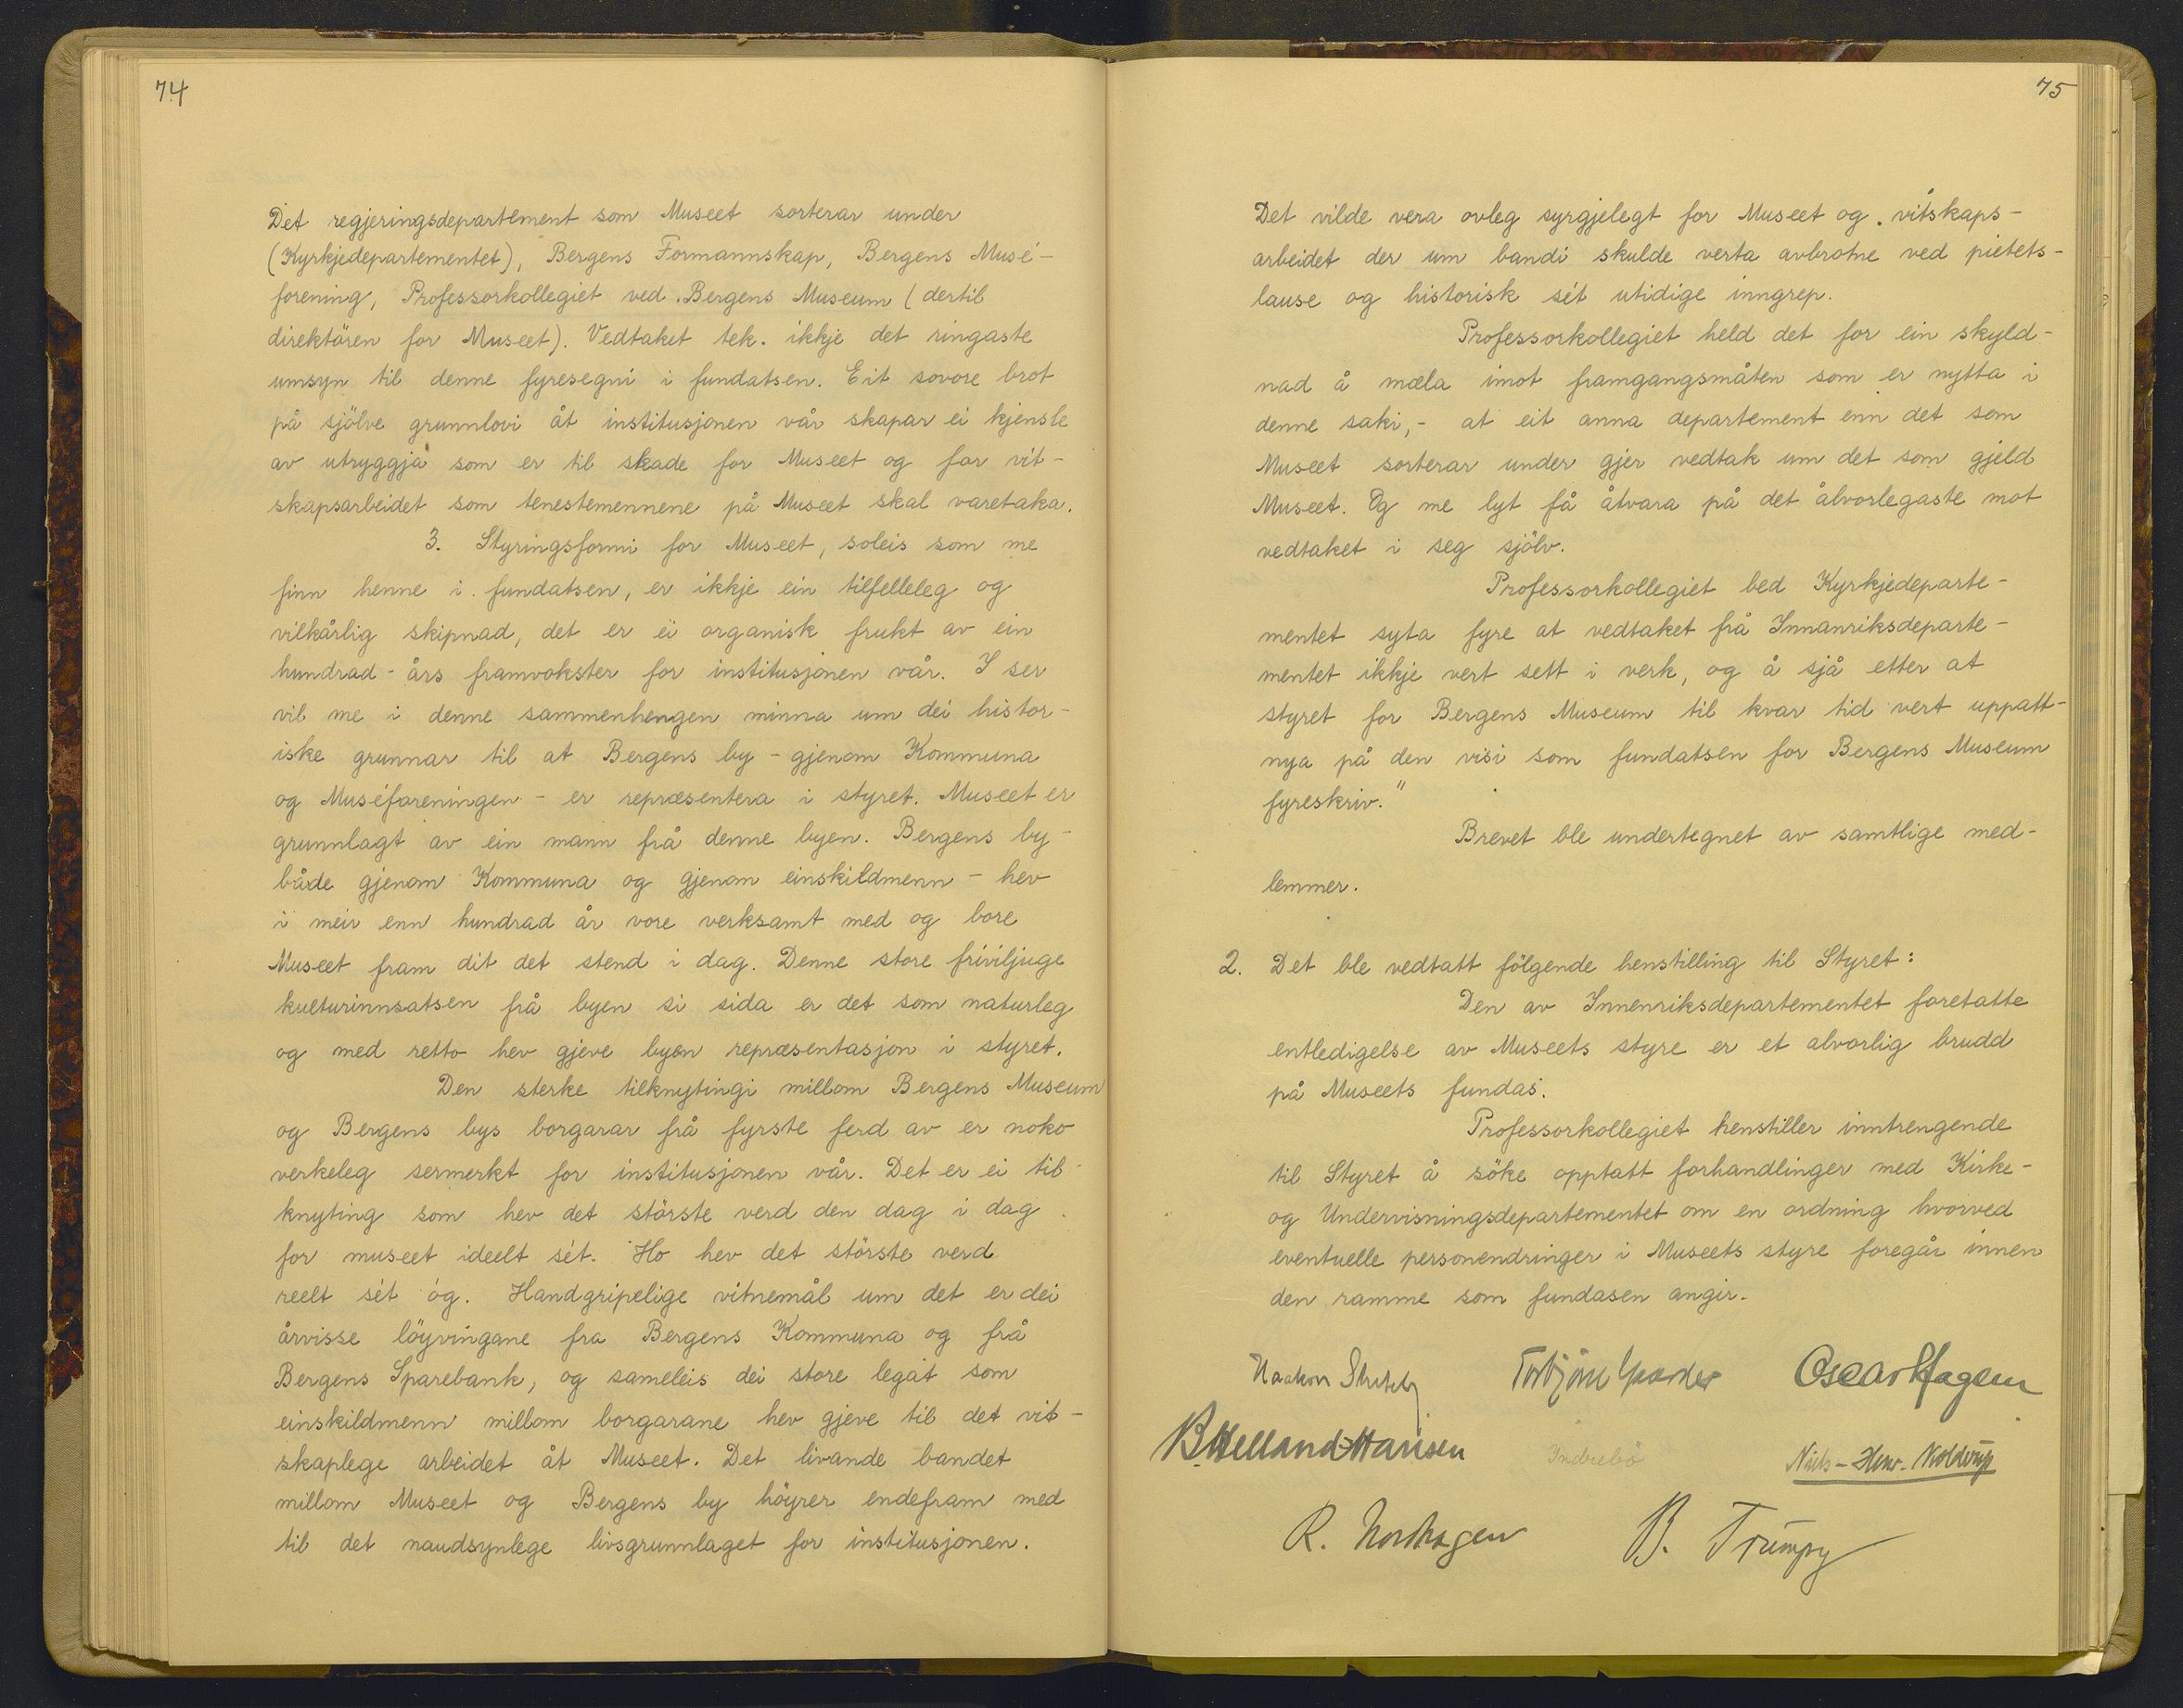 74
Det regjeringsdepartement som Museet sorterar under
(Kyrkjedepartementet), Bergens Formannskap, Bergens Musé-
forening, Professorkollegiet ved Bergens Museum (dertil
direktören for Museet). Vedtaket tek ikkje det ringaste
umsyn til denne fyresegni i fundatsen. Eit sovore brot
på sjölve grunnlovi åt institusjonen vår skapar ei kjensle
av utryggja som er til skade for Museet og for vit-
skapsarbeidet som tenestemennene på Museet skal varetaka.
3. Styringsformi for Museet, soleis som me
finn henne i fundatsen, er ikkje ein tilfelleleg og
vilkårlig skipnad, det er ei organisk frukt av ein
hundrad-års framvokster for institusjonen vår. I ser
vil me i denne sammenhengen minna um dei histor-
iske grunnar til at Bergens by - gjenom Kommuna
og Muséforeningen - er repræsentera i styret. Museet er
grunnlagt av ein mann frå denne byen. Bergens by -
både gjenom Kommuna og gjenom einskildmenn - hev
i meir enn hundrad år vore verksamt med og bore
Museet fram dit det stend i dag. Denne store friviljuge
kulturinnsatsen frå byen si sida er det som naturleg
og med retto hev gjeve byen repræsentasjon i styret.
Den sterke tilknytingi millom Bergens Museum
og Bergens bys borgarar frå fyrste ferd av er noko
verkeleg sermerkt for institusjonen vår. Det er ei til-
knyting som hev det störste verd den dag i dag
for museet ideelt sét. Ho hev det störste verd
reelt sét óg. Handgripelige vitnemål um det er dei
årvisse löyvingane fra Bergens Kommuna og frå
Bergens Sparebank, og sameleis dei store legat som
einskildmenn millom borgarane hev gjeve til det vit-
skaplege arbeidet åt Museet. Det livande bandet
millom Museet og Bergens by höyrer endefram med
til det naudsynlege livsgrunnlaget for institusjonen.
75
Det vilde vera ovleg syrgjelegt for Museet og vitskaps-
arbeidet der um bandi skulde verta avbrotne ved pietets-
lause og historisk sét utidige inngrep.
Professorkollegiet held det for ein skyld-
nad å mæla imot framgangsmåten som er nytta i
denne saki, - at eit anna departement enn det som
Museet sorterar under gjer vedtak um det som gjeld
Museet. Og me lyt få åtvara på det ålvorlegaste mot
vedtaket i seg sjölv.
Professorkollegiet bed Kyrkjedeparte-
mentet syta fyre at vedtaket frå Innanriksdeparte-
mentet ikkje vert sett i verk, og å sjå etter at
styret for Bergens Museum til kvar tid vert uppatt-
nya på den visi som fundatsen for Bergens Museum
fyreskriv."
Brevet ble undertegnet av samtlige med-
lemmer.
2. Det ble vedtatt fölgende henstilling til Styret:
Den av Innenriksdepartementet foretatte
entledigelse av Museets styre er et alvorlig brudd
på Museets fundas.
Professorkollegiet henstiller inntrengende
til Styret å söke opptatt forhandlinger med Kirke-
og Undervisningsdepartementet om en ordning hvorved
eventuelle personendringer i Museets styre foregår innen
den ramme som fundasen angir.
Haakon Shetelig Torbjörn Gaarder Oscar Hagem
B Helland-Hansen Indrebö Niels-Henr. Kolderup
R. Nordhagen B. Trumpy